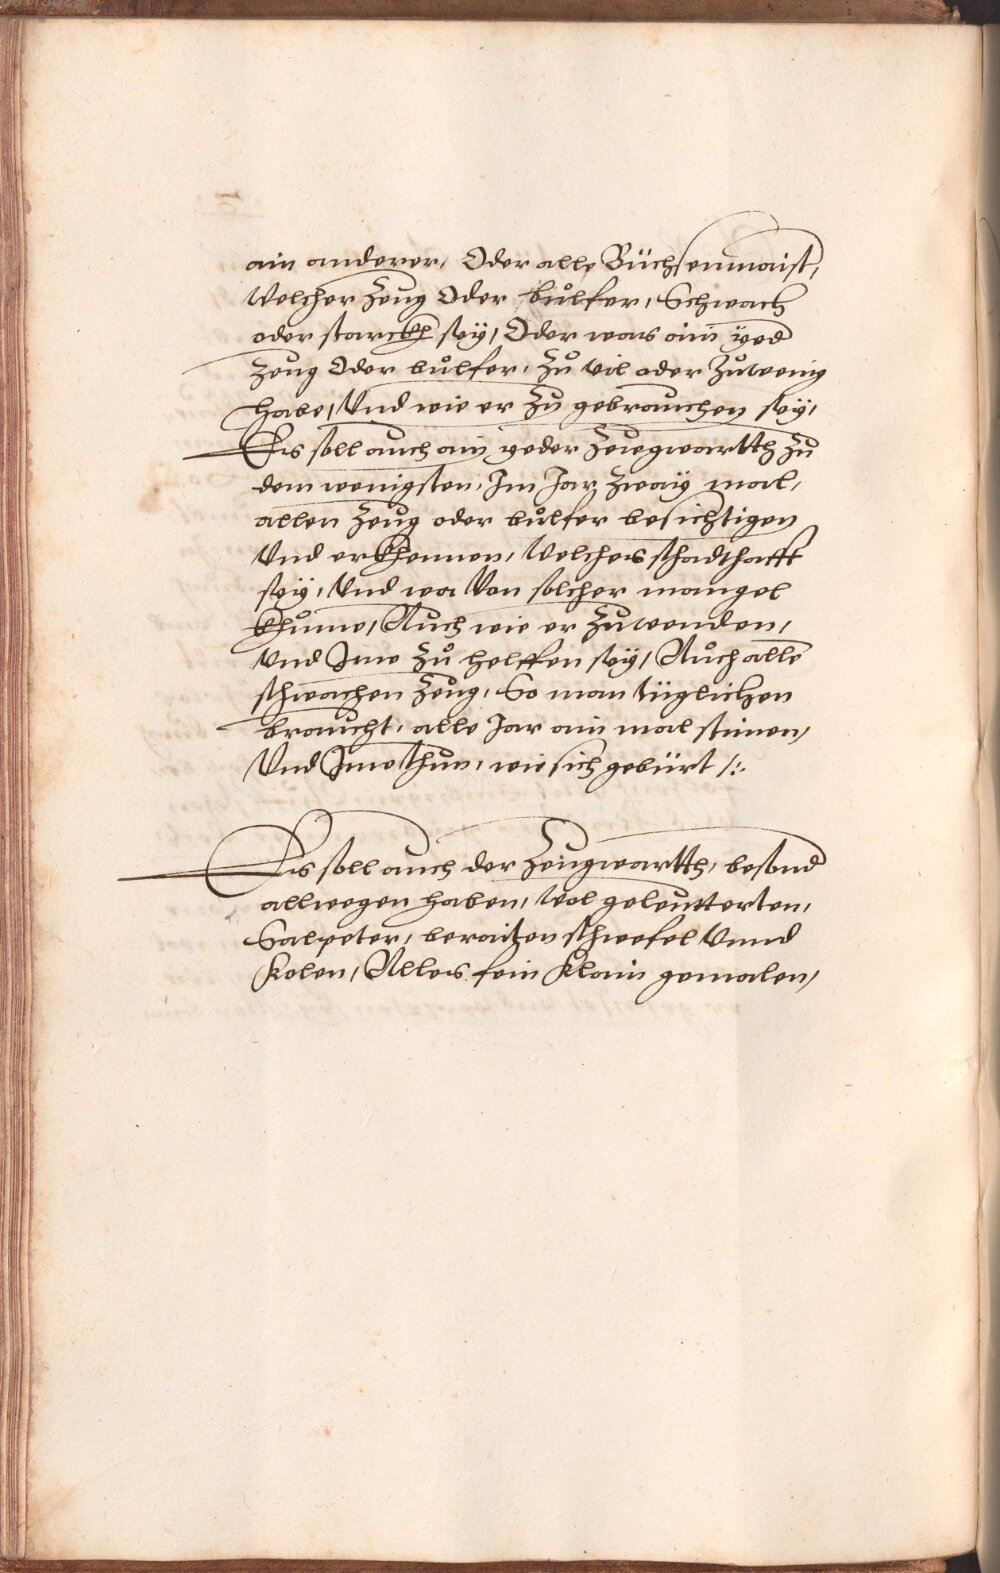 ain anderer, Oder alle Büchsenmaist,
Welcher Zeug Oder bůlfer, Schwach
oder starckh sey, Oder was ain yed
Zeug Oder bůlfer, Zů vil oder Zůwenig
habe, Und wie er Zů gebrauchen sey,
Es soll auch ain yeder Zeugwartth Zů
dem wenigsten, Im Jar Zway mal,
allen Zeug oder bůlfer besichtigen
Und erkhennen, Welches schadthafft
sey, Und wa Von solcher mangel
khume, Auch wie er Zůwenden,
Und Jme Zů helffen sey, Aůch alle
schwachen Zeug, So man tüglichen
braucht, alle Jar ain mal stimen,
Und Jme thun, wie sich gebürt /:.
Es soll auch der Zeugwartth, besond
allwegen haben, Wol geleutterten,
Salpeter, beraiten schwefel Unnd
Kolen, Alles fein Klain gemalen,